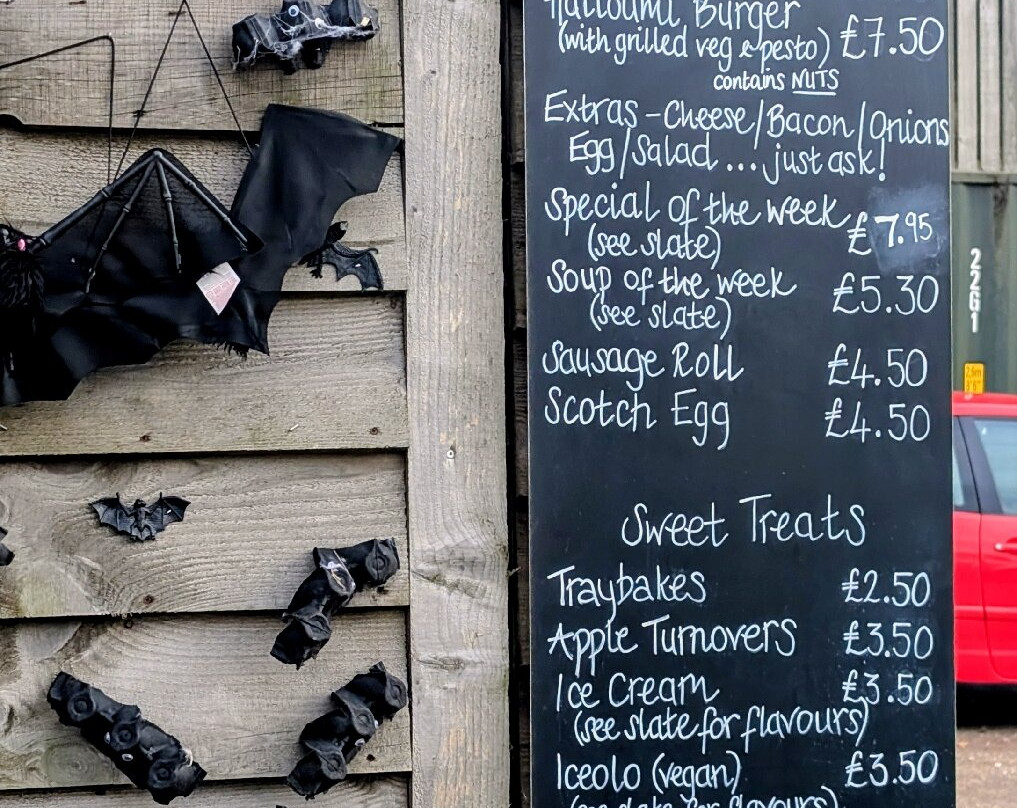 Halloumi Burger
(with grilled veg & pesto) £7.50
contains NUTS
Extras - Cheese/Bacon/Onions
Egg/Salad ... just ask!
Special of the week £7.95
(see slate)
Soup of the week £5.30
(see slate)
Sausage Roll £4.50
Scotch Egg £4.50
Sweet Treats
Traybakes £2.50
Apple Turnovers £3.50
Ice Cream £3.50
(see slate for flavours)
Iceolo (vegan) £3.50
(see slate for flavours)
22G1